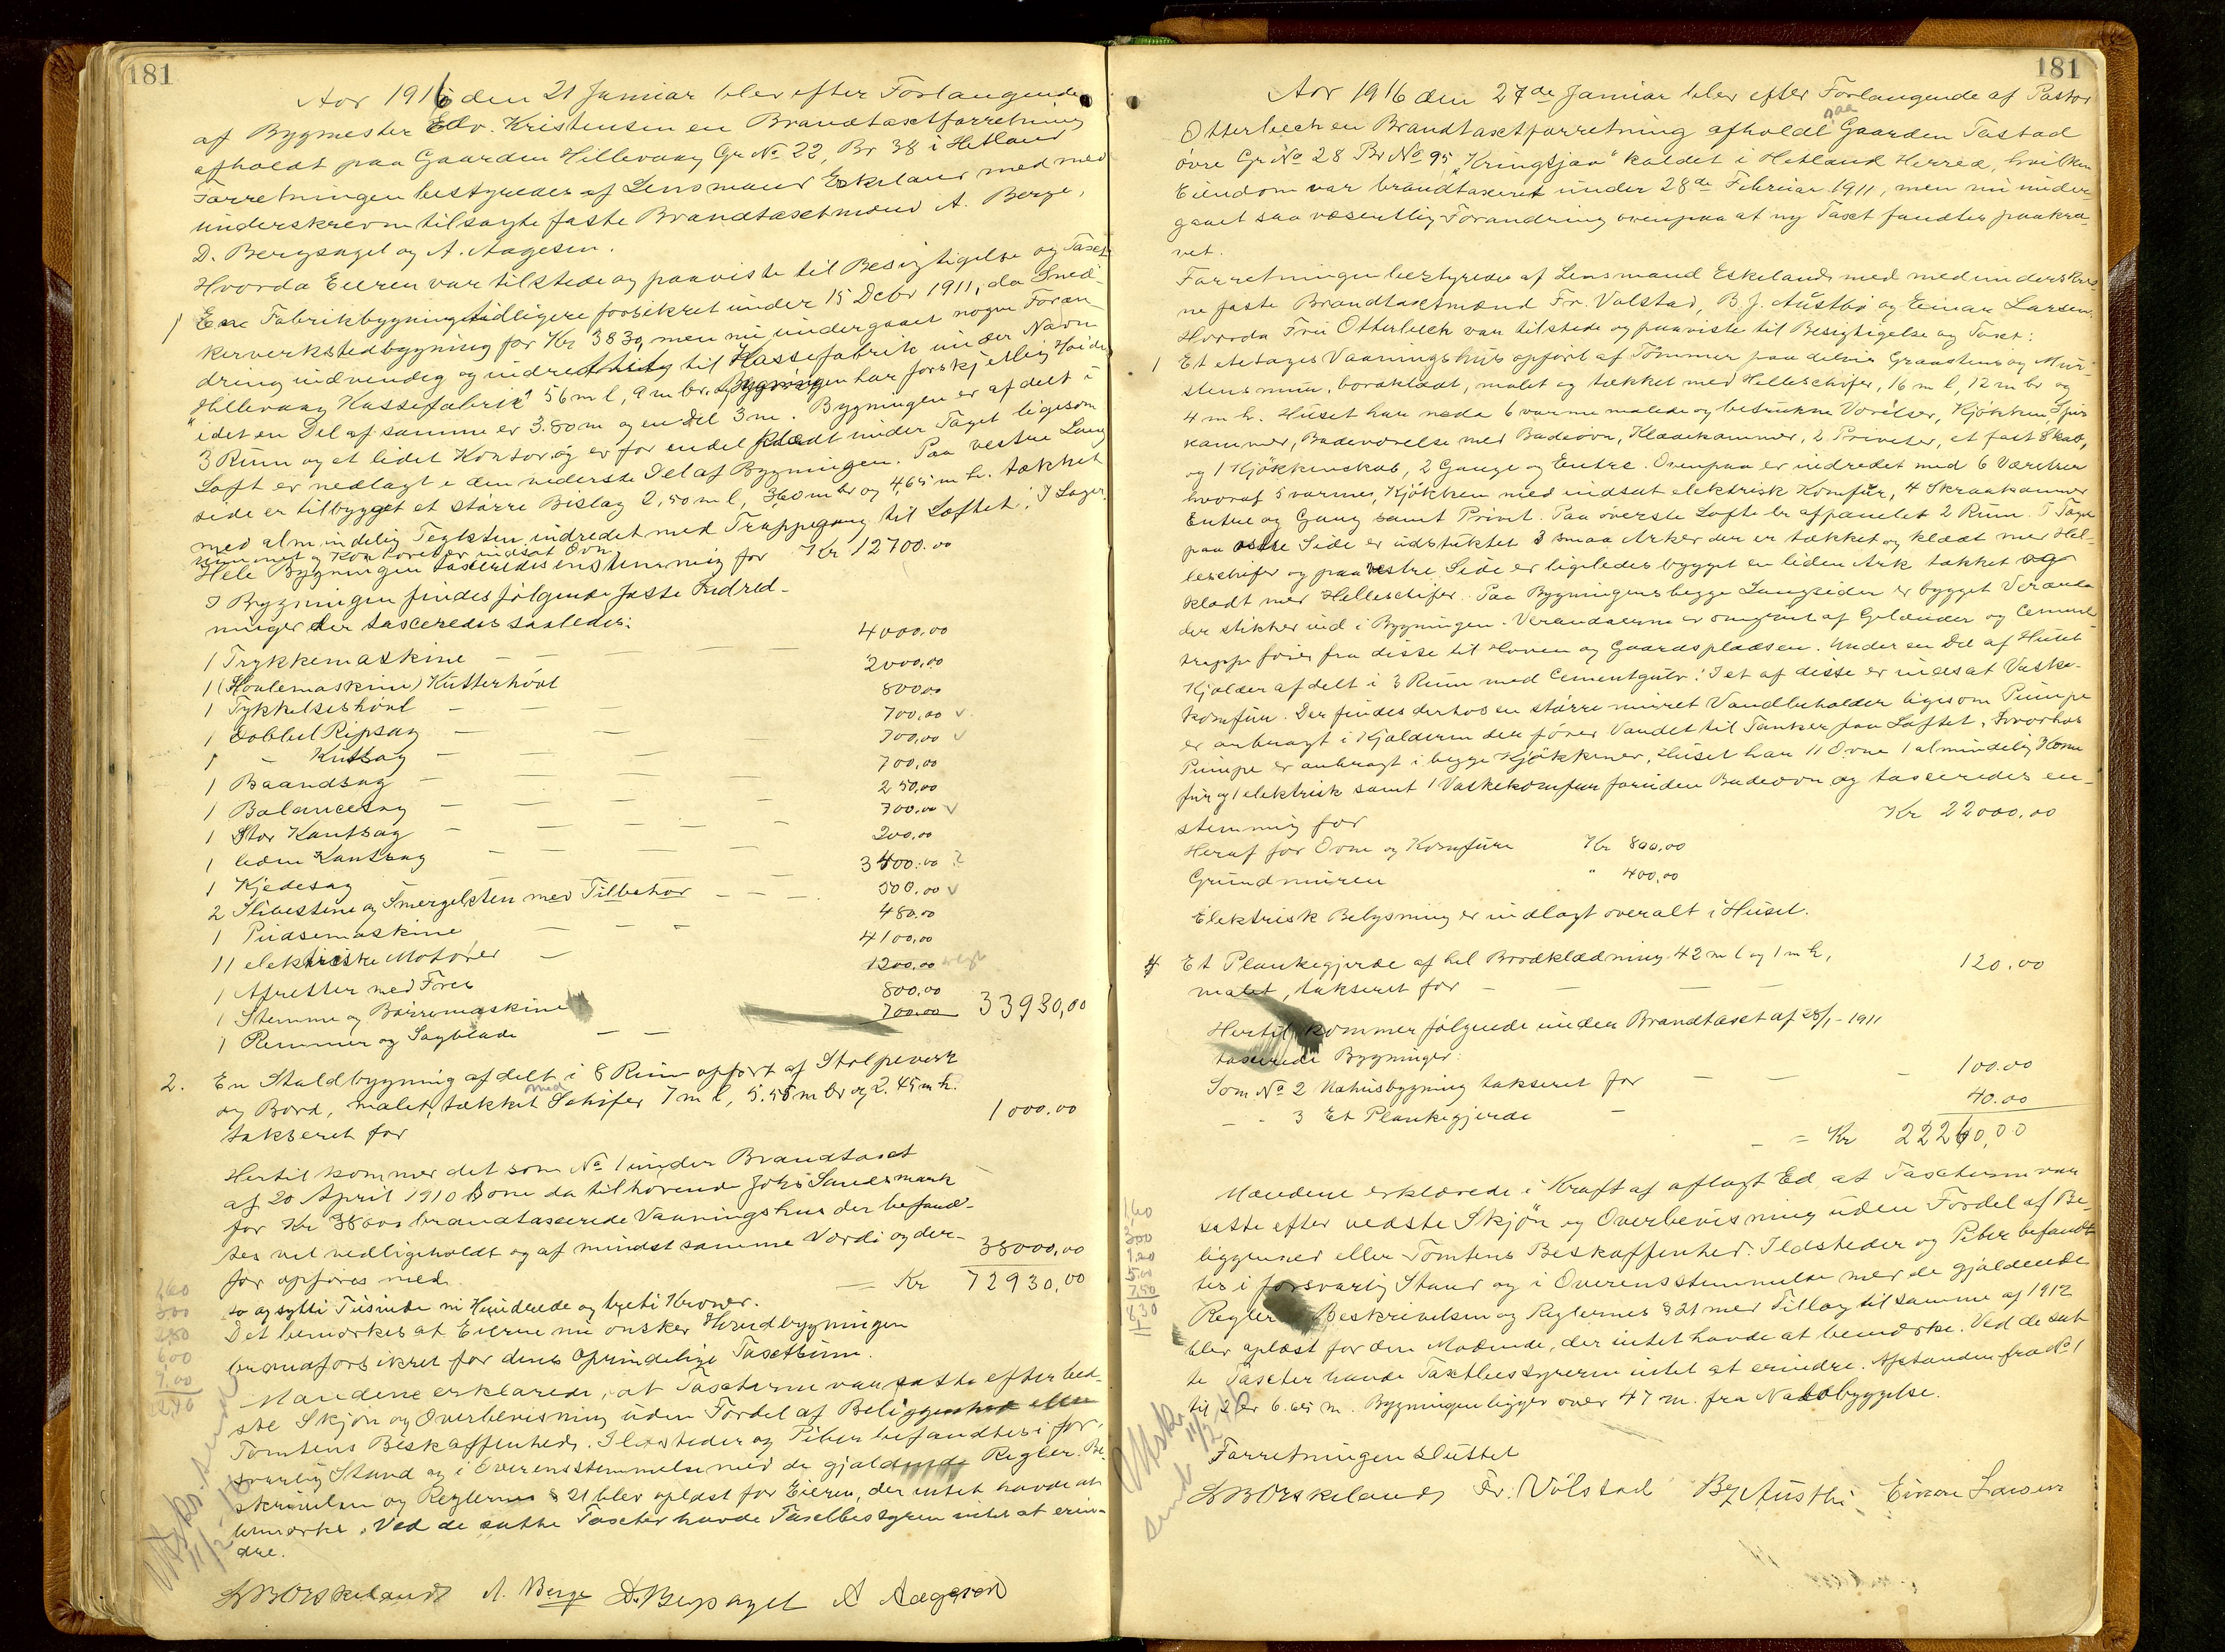 181
Aar 1916 den 21 Januar blev efter Forlangende
af Bygmester Edv. Kristensen en Brandtaxtforretning
afholdt paa Gaarden Hillevaag Gr No 22, Br 38 i Hetland
Forretningen bestyredes af Lensmand Eskeland med med
underskrevne tilsagte faste Brandtaxtmænd A. Berge,
D. Bergsagel og A. Aagesen.
Hvorda Eieren var tilstede og paaviste til Besigtigelse og Taxt
1 Ene Fabrikbygning tidligere forsikret under 15 Debr 1911, da Sned-
kerverkstedbygning for Kr 3830, men nu undergaaet nogen Foran
dring indvendig og indredet til Kassefabrik under Navn
"Hillevaag Kassefabrik" 56 m l, 9 m br. Bygningen har forskjellig Høide
idet en Del af samme er 3.80 m og en Del 3 m. Bygningen er afdelt i
3 Rum og et lidet Kontor og er for endel klædt under Taget ligesom
Loft er nedlagt i den nederste Del af Bygningen. Paa vestre Lang
side er tilbygget et større Bislag 2,50 m l, 3,60 m br og 4,65 m h. tækket
med almindelig Teglsten indredet med Trappegang til Loftet. I Lager
rummet og Kontoret er indsat Ovn
Hele Bygningen taxeredes enstemmig for Kr 12700.00
I Bygningen findes følgende faste Indred-
ninger der taxeredes saaledes:
1 Trykkemaskine — — — 4000.00
1 (Høvlemaskine) Kutterhøvl 2000,00
1 Tykkelseshøvl — — — 800,00
1 Dobbel Ripsag — — — 700,00 v
1 - Kutsag — — — 700,00 v
1 Baandsag — — — 700,00
1 Balancesag — — — 250,00
1 Stor Kantsag — — — 700.00 v
1 liden Kantsag — — — 200,00
1 Kjedesag 3400.00 ?
2 Slibestene og Smergelsten med Tilbehør — — 500.00 v
1 Pudsemaskine — — - 480.00
11 elektriske Motorer — 4100,00
1 Afretter med Fres 1200,00
1 Stemme og Borremaskine 800.00
1 Remmer og Sagblade — — 700.00 33930,00
2. En Staldbygning afdelt i 8 Rum opført af Stolpeverk
og Bord, malet, tækket med Schifer 7 m l, 5.55 m br og 2.45 m h.
takseret for 1000.00
Hertil kommer det som No 1 under Brandtaxt
af 20 April 1910 da tilhørende Johs Sandsmark
for Kr 38000 brandtaxerede Vaaningshus der befand-
tes vel vedligeholdt og af mindst samme Værdi og der-
for opføres med 38000,00
= Kr 72930,00
to og sytti Tusinde ni Hundrede og treti Kroner.
Det bemærkes at Eieren nu ønsker Hovedbygningen
brandforsikret for dens oprindelige Taxtsum.
Mændene erklærede, at Taxterne var satte efter bed-
ste Skjøn og Overbevisning uden Fordel af Beliggenhed eller
Tomtens Beskaffenhed. Ildsteder og Piber befandtes i for-
svarlig Stand og i Overensstemmelse med de gjældende Regler. Be-
skrivelsen og Reglernes § 21 blev oplæst for Eieren, der intet havde at
bemærke. Ved de satte Taxter havde Taxtbestyreren intet at erin-
dre.
A. Berge D. Bergsagel A Aagesen
Utskr. sendt
11/2-16
181
Aar 1916 den 27de Januar blev efter Forlangende af Pastor
Otterbech en Brandtaxtforretning afholdt paa Gaarden Tastad
øvre Gr No 28 Br No 95, "Kringsjaa" kaldet i Hetland Herred, hvilken
Eiendom var brandtaxeret under 28de Februar 1911, men nu under-
gaaet saa væsentlig Forandring ovenpaa at ny Taxt fandtes paakræ-
vet.
Forretningen bestyredes af Lensmand Eskeland med medunderskrev-
ne faste Brandtaxtmænd Fr. Valstad, B. J. Austbø og Einar Larsen.
Hvorda Fru Otterbech var tilstede og paaviste til Besigtigelse og Taxt:
1 Et etetages Vaaningshus opført af Tømmer paa delvis Graastens og Mur-
stensmur, bordklædt, malet og tækket med Helleschifer, 16 m l, 12 m br og
4 m h. Huset har nede 6 varme malede og betrukne Værelser, Kjøkken Spis
kammer, Badeværelse med Badeovn, Klædekammer, 2 Priveter, et fast Skab,
og 1 Kjøkkenskab, 2 Gange og Entre. Ovenpaa er indredet med 6 Værelser
hvoraf 5 varme, Kjøkken med indsat elektrisk Komfur, 4 Skraakammer
Entre og Gang samt Privet. Paa øverste Loft er afpanelet 2 Rum. I Taget
paa østre Side er udstuktet 3 smaa Arker der er tækket og klædt med Hel-
leschifer og paa vestre Side er ligeledes bygget en liden Ark tækket og
klædt med Helleschifer. Paa Bygningens begge Langsider er bygget Veranda
der stikker ind i Bygningen. Verandaerne er omgivet af Gelænder og Cement
trappe fører fra disse til Haven og Gaardspladsen. Under en Del af Huset
Kjælder afdelt i 3 Rum med Cementgulv. I et af disse er indsat Vaske-
komfur. Der findes derhos en større muret Vandbeholder ligesom Pumpe
er anbragt i Kjælderen der fører Vandet til Tanker paa Loftet, hvorhos
Pumpe er anbragt i begge Kjøkkener, Huset har 11 Ovne 1 almindelig Kom
fur og 1 elektrisk samt 1 Vaskekomfur foruden Badeovn og taxeredes en-
stemmig for Kr 22000,00
Heraf for Ovne og Komfure Kr 800,00
Grundmuren " 400,00
Elektrisk Belysning er indlagt overalt i Huset.
4 Et Plankegjerde af hel Bordklædning 42 m l og 1 m h,
malet, takseret for — — — 120.00
Hertil kommer følgende under Brandtaxt af 28/1-1911
taxerede Bygninger:
Som No 2 Uthusbygning takseret for — — - 100.00
- - 3 Et Plankegjerde — 40.00
— = Kr 22260,00
Mændene erklærede i Kraft af aflagt Ed, at Taxterne var
satte efter bedste Skjøn og Overbevisning uden Fordel af Be-
liggenhed eller Tomtens Beskaffenhed. Ildsteder og Piber befandt
tes i forsvarlig Stand og i Overensstemmelse med de gjældende
Regler Beskrivelsen og Reglernes § 21 med Tillæg til samme af 1912
blev oplæst for den Mødende, der intet havde at bemærke. Ved de sat
te Taxter havde Taxtbestyreren intet at erindre. Afstanden fra No 1
til 2 er 6.65 m. Bygningen ligger over 47 m. fra Nabobyggelse.
Forretningen sluttet
Fr. Volstad B J Austbø Einar Larsen
Utskr. sendt
11/2-16